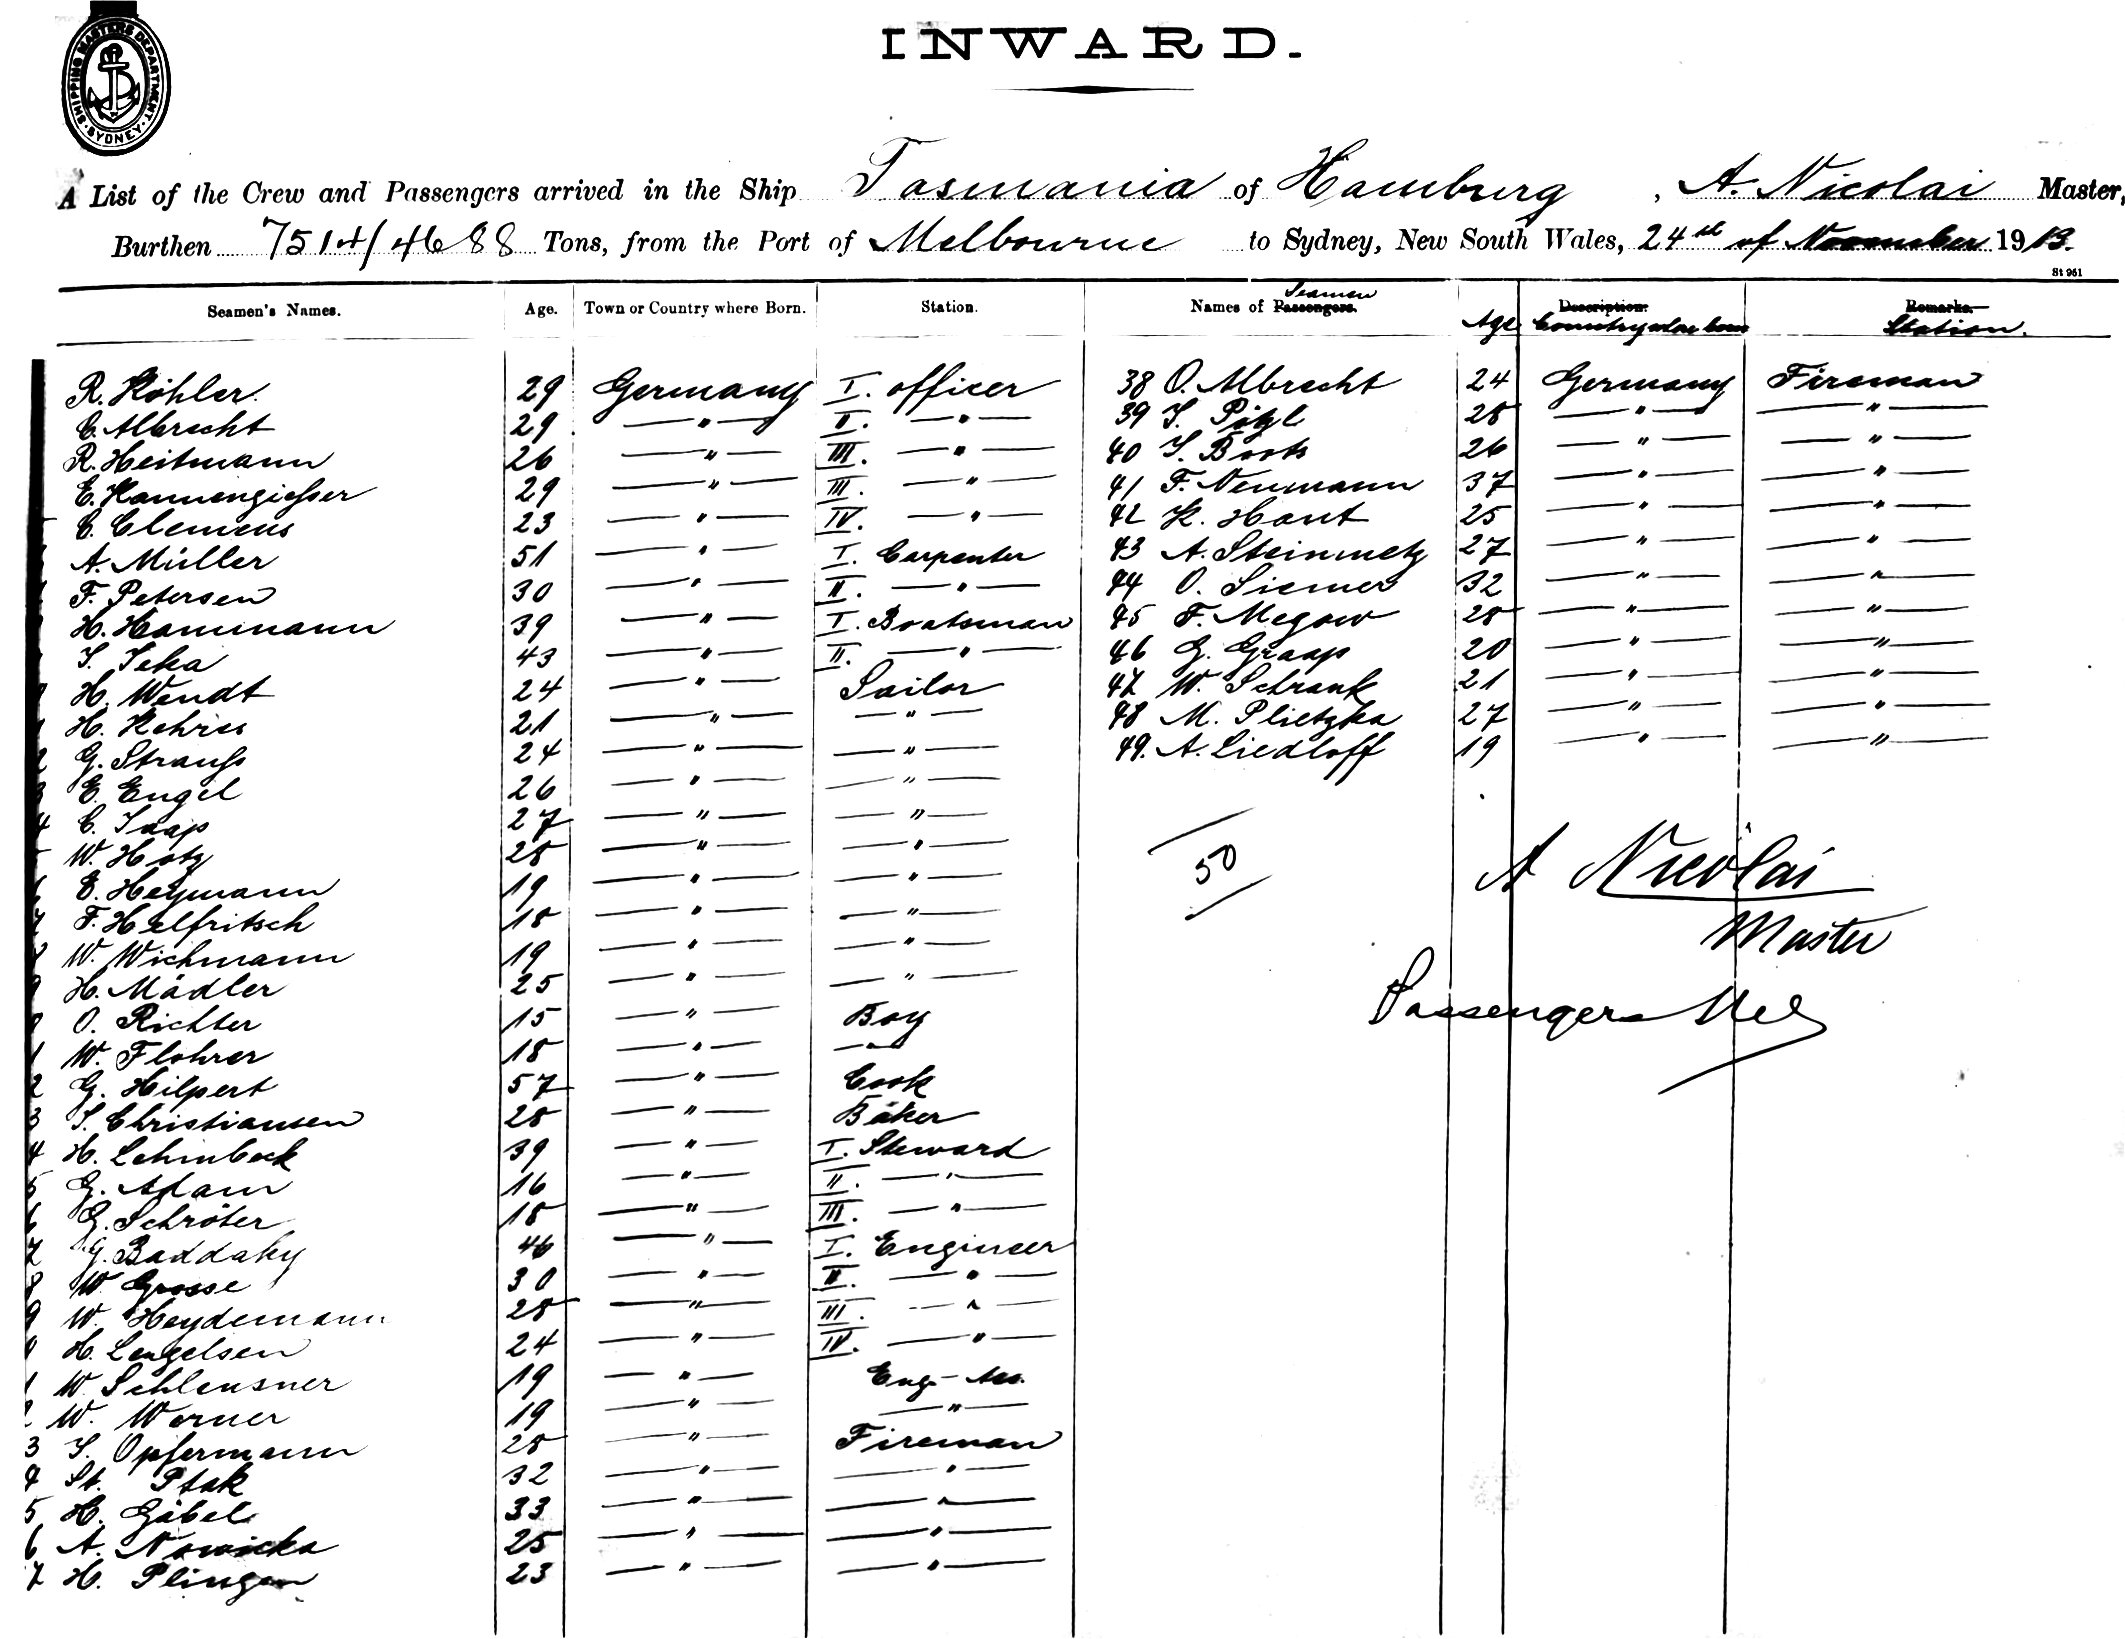 SHIPPING MASTERS DEPARTMENT. SYDNEY
INWARD.
A List of the Crew and Passengers arrived in the Ship Tasmania of Hamburg, A. Nicolai Master,
Burthen 7514/4688 Tons, from the Port of Melbourne to Sydney, New South Wales, 24th of November 1913.
St 961
Seamen's Names. Age. Town or Country where Born. Station. Names of Passengers. Seamen Age Description. Country where born Remarks. Station.
R. Köhler. 29 Germany I. officer
C. Albrecht 29 " II. "
R. Heitmann 26 " III. "
E. Kannengiesser 29 " III. "
C. Clemens 23 " IV. "
A. Müller 51 " I. Carpenter
F. Petersen 30 " II. "
H. Hammann 39 " I. Boatsman
J. Jeka 43 " II. "
H. Wendt 24 " Sailor
H. Kehris 21 " "
2 G. Strauss 24 " "
3 E. Engel 26 " "
4 C. Jaap 27 " "
W. Hotz 28 " "
6 E. Heymann 19 " "
7 F. Helfritsch 18 " "
W. Wichmann 19 " "
9 H. Mädler 25 " "
O. Richter 15 " Boy
1 W. Flohrer 18 " "
2 G. Hilpert 57 " Cook
3 J. Christiansen 28 " Bäker
4 H. Lehmbeck 39 " I. Steward
5 G. Adam 16 " II. "
6 G. Schröter 18 " III. "
7 G. Baddaky 46 " I. Engineer
8 W. Grosse 30 " II. "
9 W. Heydemann 28 " III. "
H. Lengelsen 24 " IV. "
1 W. Schleusner 19 " Eng.- Ass.
2 W. Werner 19 " "
3 J. Opfermann 28 " Fireman
4 St. Ptak 32 " "
5 H. Gäbel 33 " "
6 A. Nowicka 25 " "
7 H. Plingen 23 " "
38 O. Albrecht 24 Germany Fireman
39 J. Pögl 28 " "
40 J. Boots 26 " "
41 F. Neumann 37 " "
42 K. Hant 25 " "
43 A. Steinmetz 27 " "
44 O. Siemer 32 " "
45 F. Megow 28 " "
46 G. Graap 20 " "
47 W. Schrank 21 " "
48 M. Plietzka 27 " "
49. A. Liedloff 19 " "
50
A Nicolai
Master
Passengers Nil